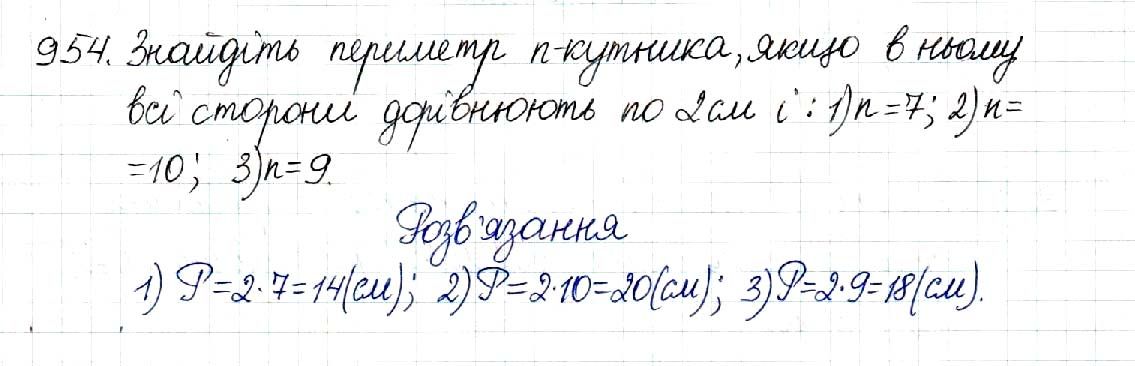 954. Знайдіть периметр n-кутника, якщо в ньому
всі сторони дорівнюють по 2см і : 1) n=7; 2) n=
=10; 3) n=9.
Розв'язання
1) P=2·7=14(см); 2) P=2·10=20(см); 3) P=2·9=18(см).